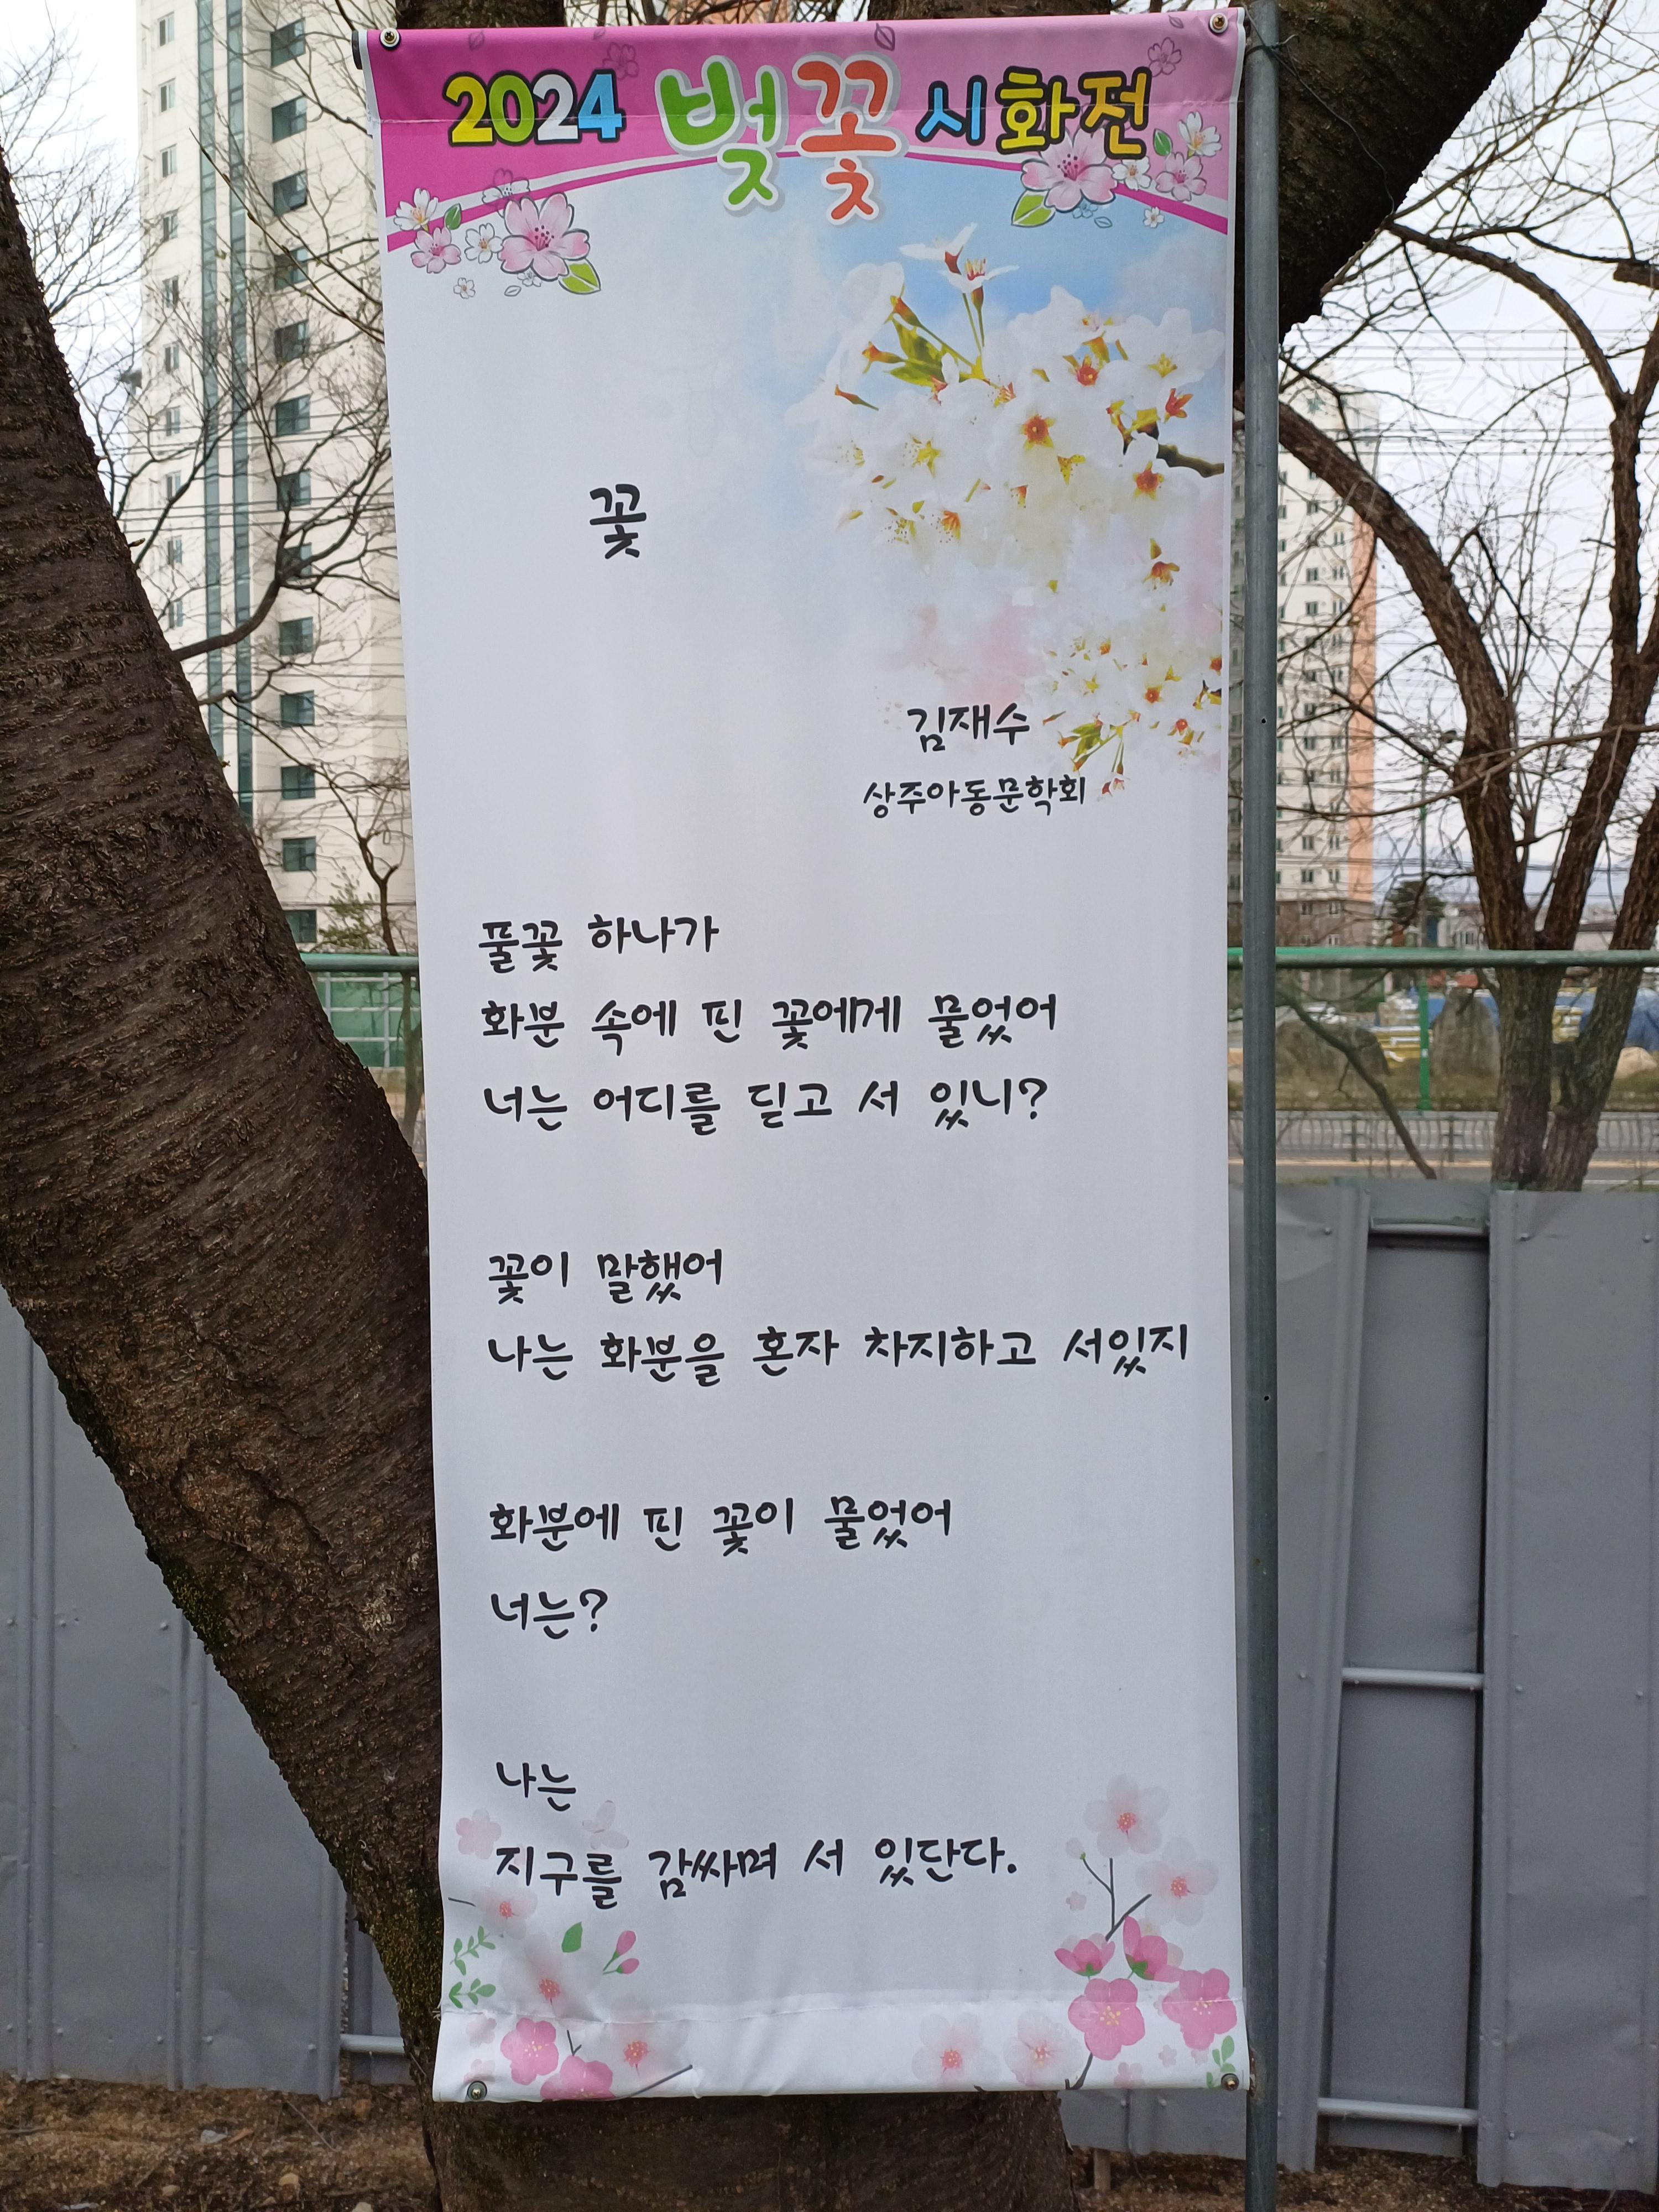 2024 벚꽃 시화전
꽃
김재수
상주아동문학회
풀꽃 하나가
화분 속에 핀 꽃에게 물었어
너는 어디를 딛고 서 있니?
꽃이 말했어
나는 화분을 혼자 차지하고 서있지
화분에 핀 꽃이 물었어
너는?
나는
지구를 감싸며 서 있단다.